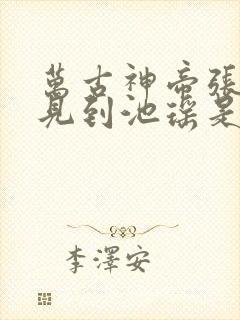 萬古神帝張
見到池瑤是
李澤安